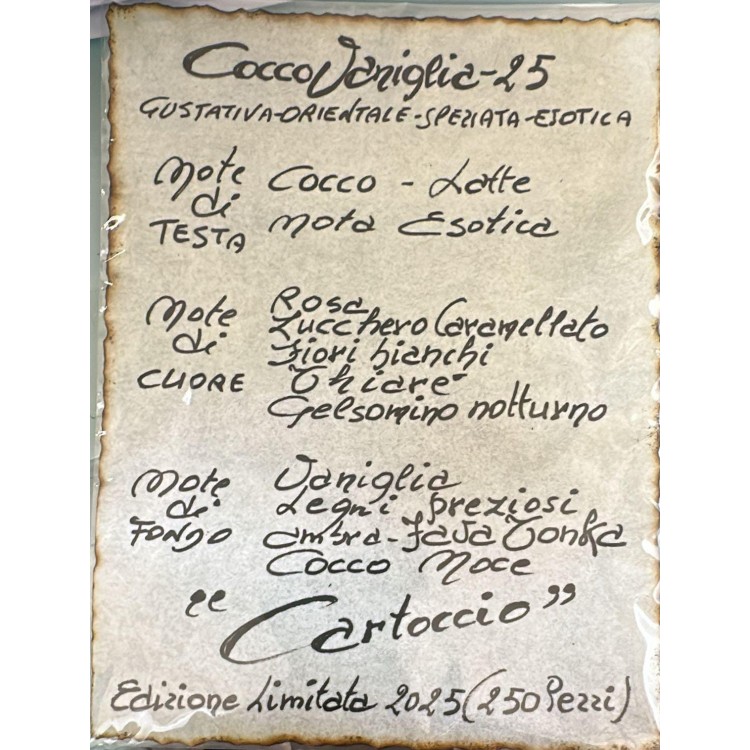 Cocco Vaniglia-25
GUSTATIVA-ORIENTALE-SPEZIATA-ESOTICA
Note di TESTA
Cocco - Latte
Nota Esotica
Note di CUORE
Rosa
Zucchero Caramellato
Fiori bianchi
Thiaré
Gelsomino notturno
Note di FONDO
Vaniglia
Legni preziosi
ambra-FaVa Tonka
Cocco Noce
"Cartoccio"
Edizione Limitata 2025 (250 Pezzi)